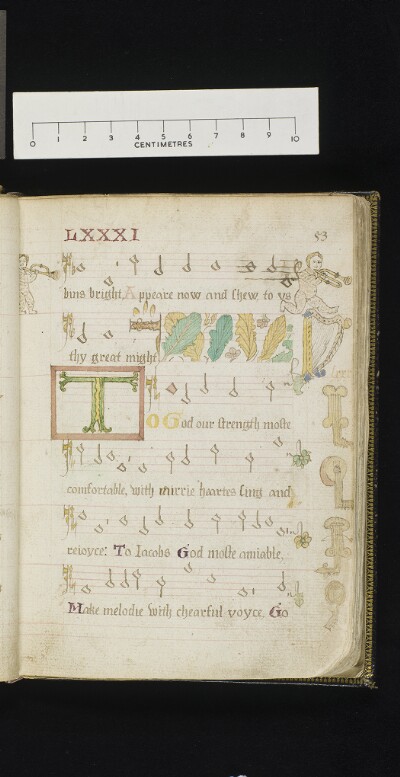 0 1 2 3 4 5 6 7 8 9 10
CENTIMETRES
LXXXI
53
bins bright, Appeare now and shew to vs
thy great might
TO God our strength moste
comfortable, with mirrie heartes sing and
reioyce: To Iacobs God moste amiable,
Make melodie with chearful voyce. Go